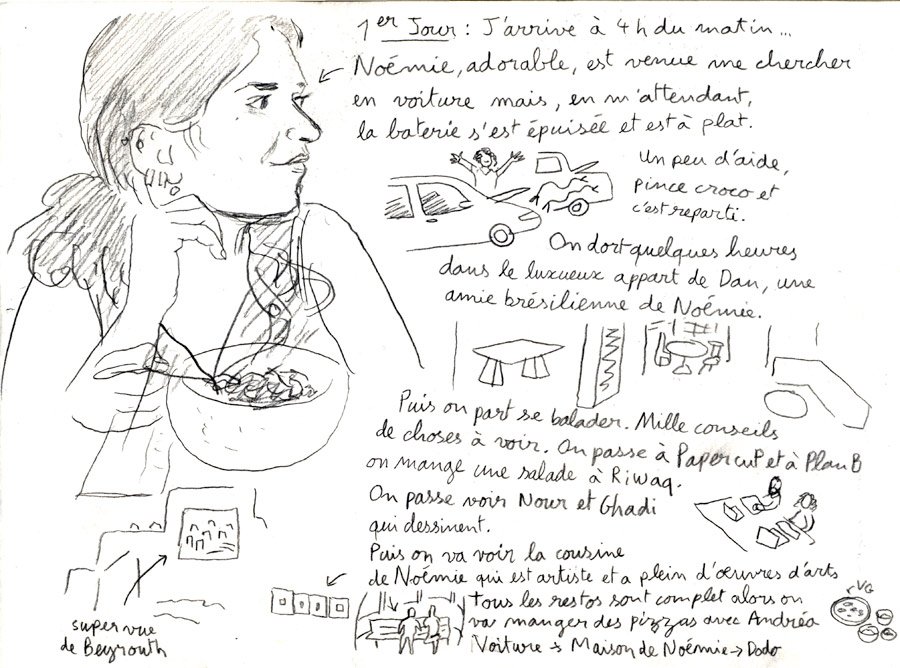 1er Jour : J'arrive à 4h du matin...
Noémie, adorable, est venue me chercher
en voiture mais, en m'attendant,
la baterie s'est épuisée et est à plat.
Un peu d'aide,
pince croco et
c'est reparti.
On dort quelques heures
dans le luxueux appart de Dan, une
amie brésilienne de Noémie.
Puis on part se balader. Mille conseils
de choses à voir. On passe à PapercuP et à Plan B
on mange une salade à Riwaq.
On passe voir Nour et Ghadi
qui dessinent.
Puis on va voir la cousine
de Noémie qui est artiste et a plein d'œuvres d'arts
Tous les restos sont complet alors on
va manger des pizzas avec Andréa
Voiture → Maison de Noémie → Dodo
super vue
de Beyrouth